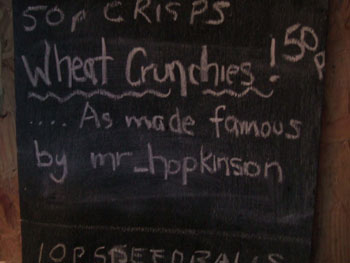 50p CRISPS
Wheat Crunchies! 50p
.... As made famous
by mr_hopkinson
10P SPEEDBALLS